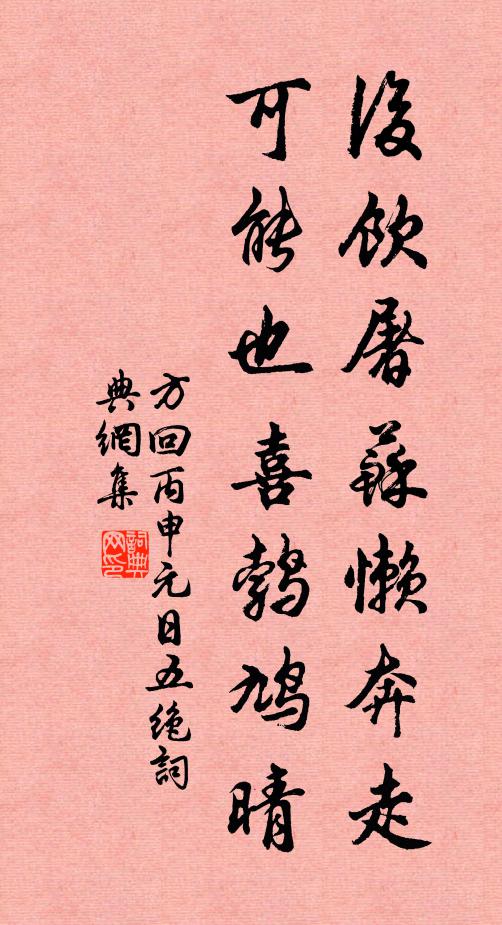 後飲屠蘇懶奔走
可能也喜鵓鳩晴
方回丙申元日五絶詞
典網集
詞典
网印